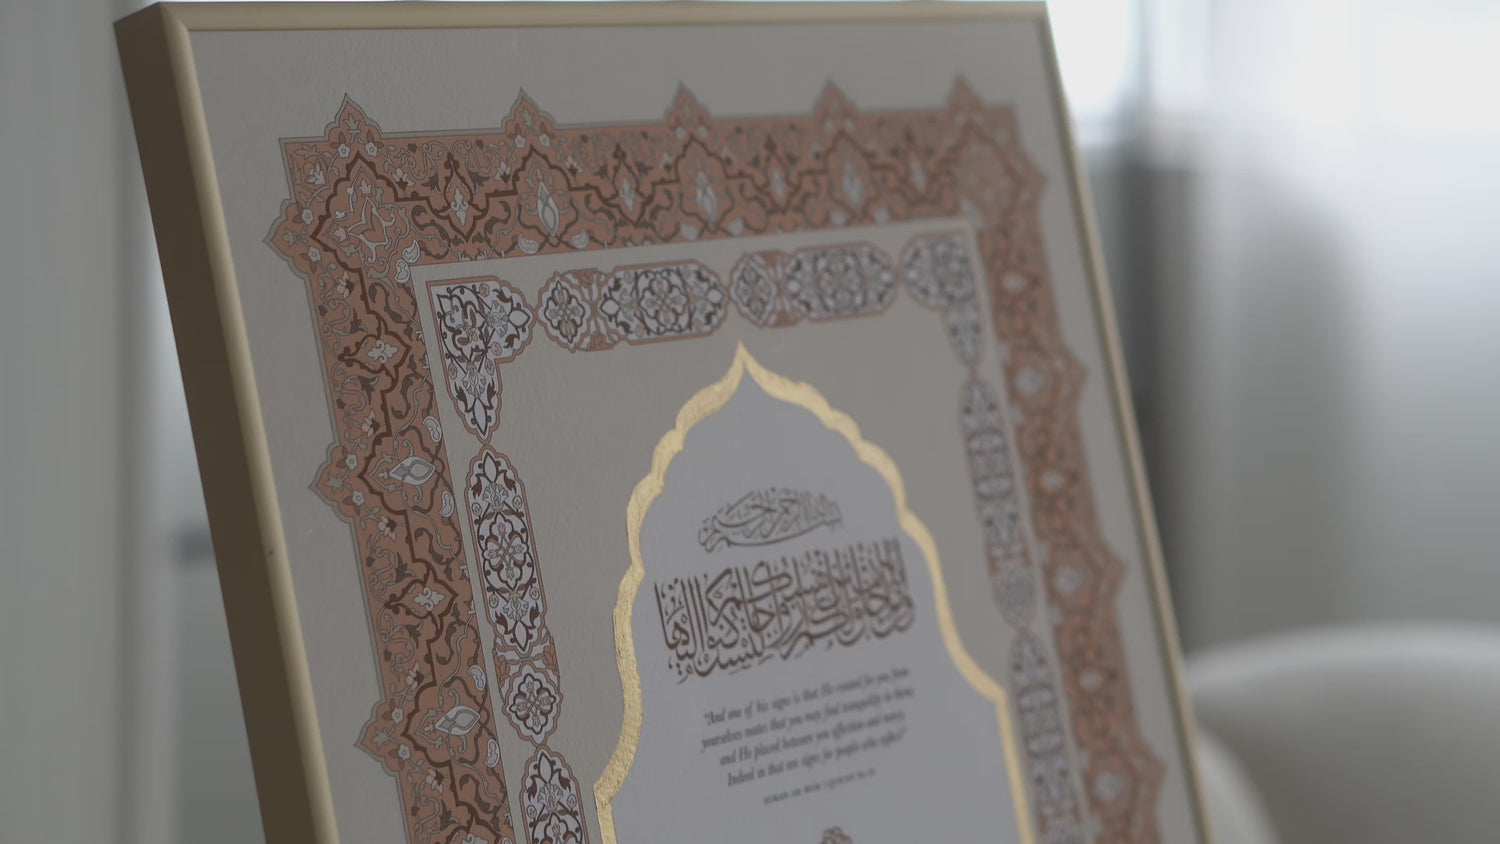 بسم الله الرحمن الرحيم
ومن آياته أن خلق لكم من أنفسكم أزواجا لتسكنوا إليها
"And one of his signs is that He created for you from
yourselves mates that you may find tranquility in them;
and He placed between you affection and mercy.
Indeed in that are signs for people who reflect"
SURAH AR-RUM